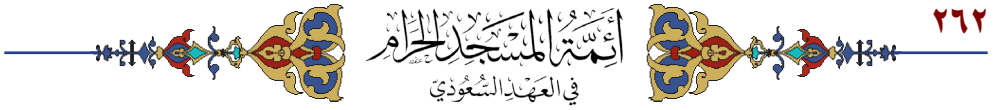 ٢٦٢
أَئِمَّةُ المَسْجِدِ الحَرَامِ
في العَهْدِ السُّعُودِيّ